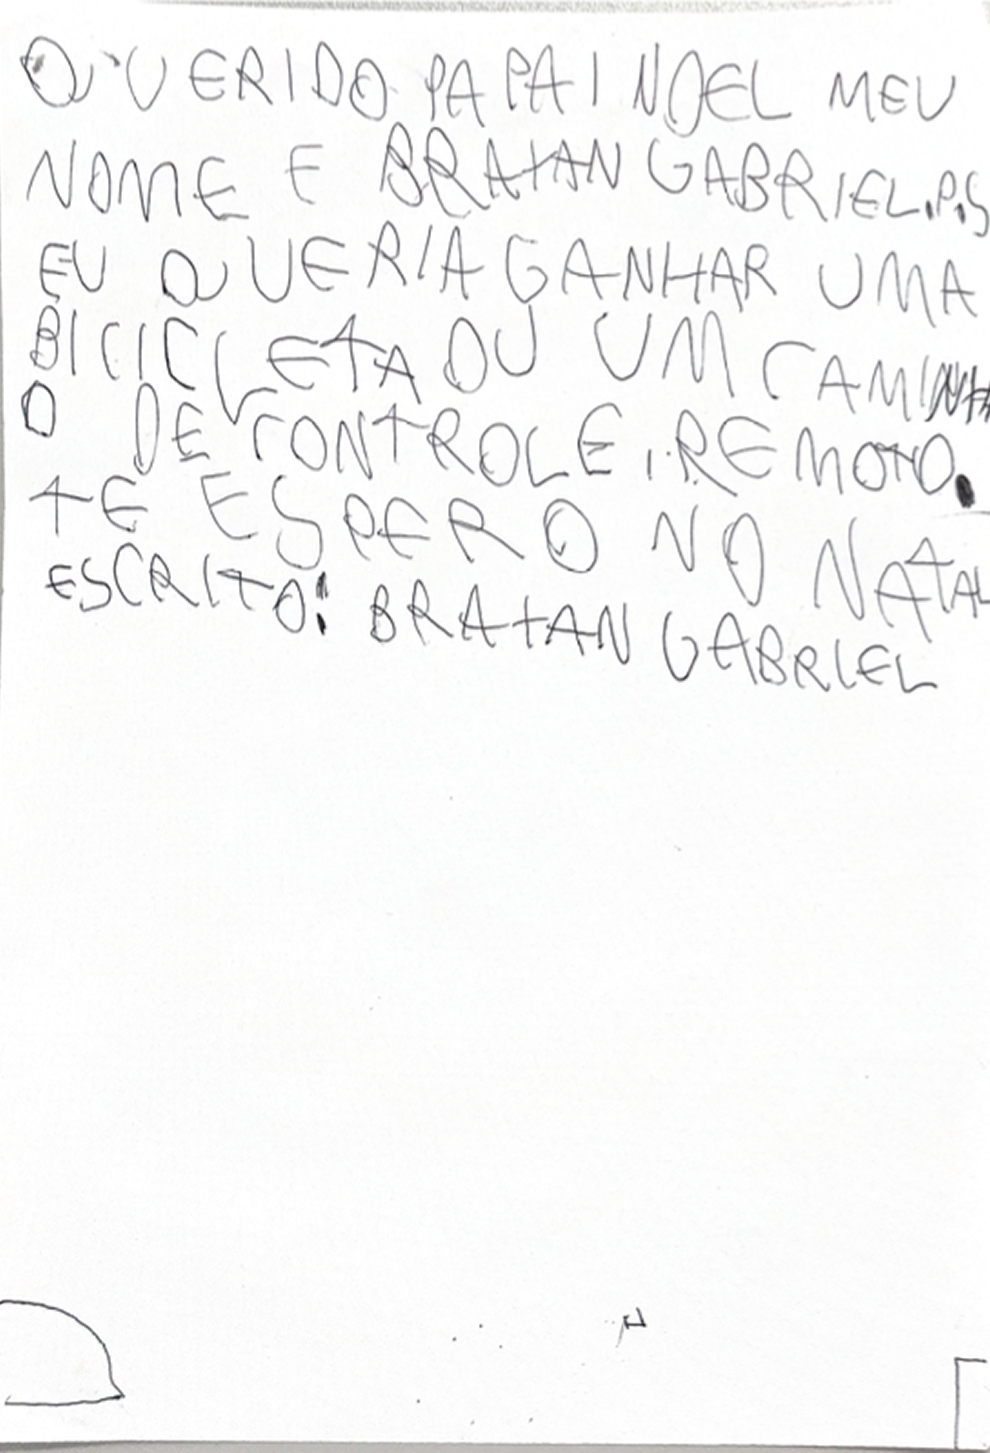 QUERIDO PAPAI NOEL MEU
NOME E BRATAN GABRIEL.P.S
EU QUERIA GANHAR UMA
BICICLETA OU UM CAMINH
O DE CONTROLE REMOTO.
TE ESPERO NO NATAL
ESCRITO: BRATAN GABRIEL